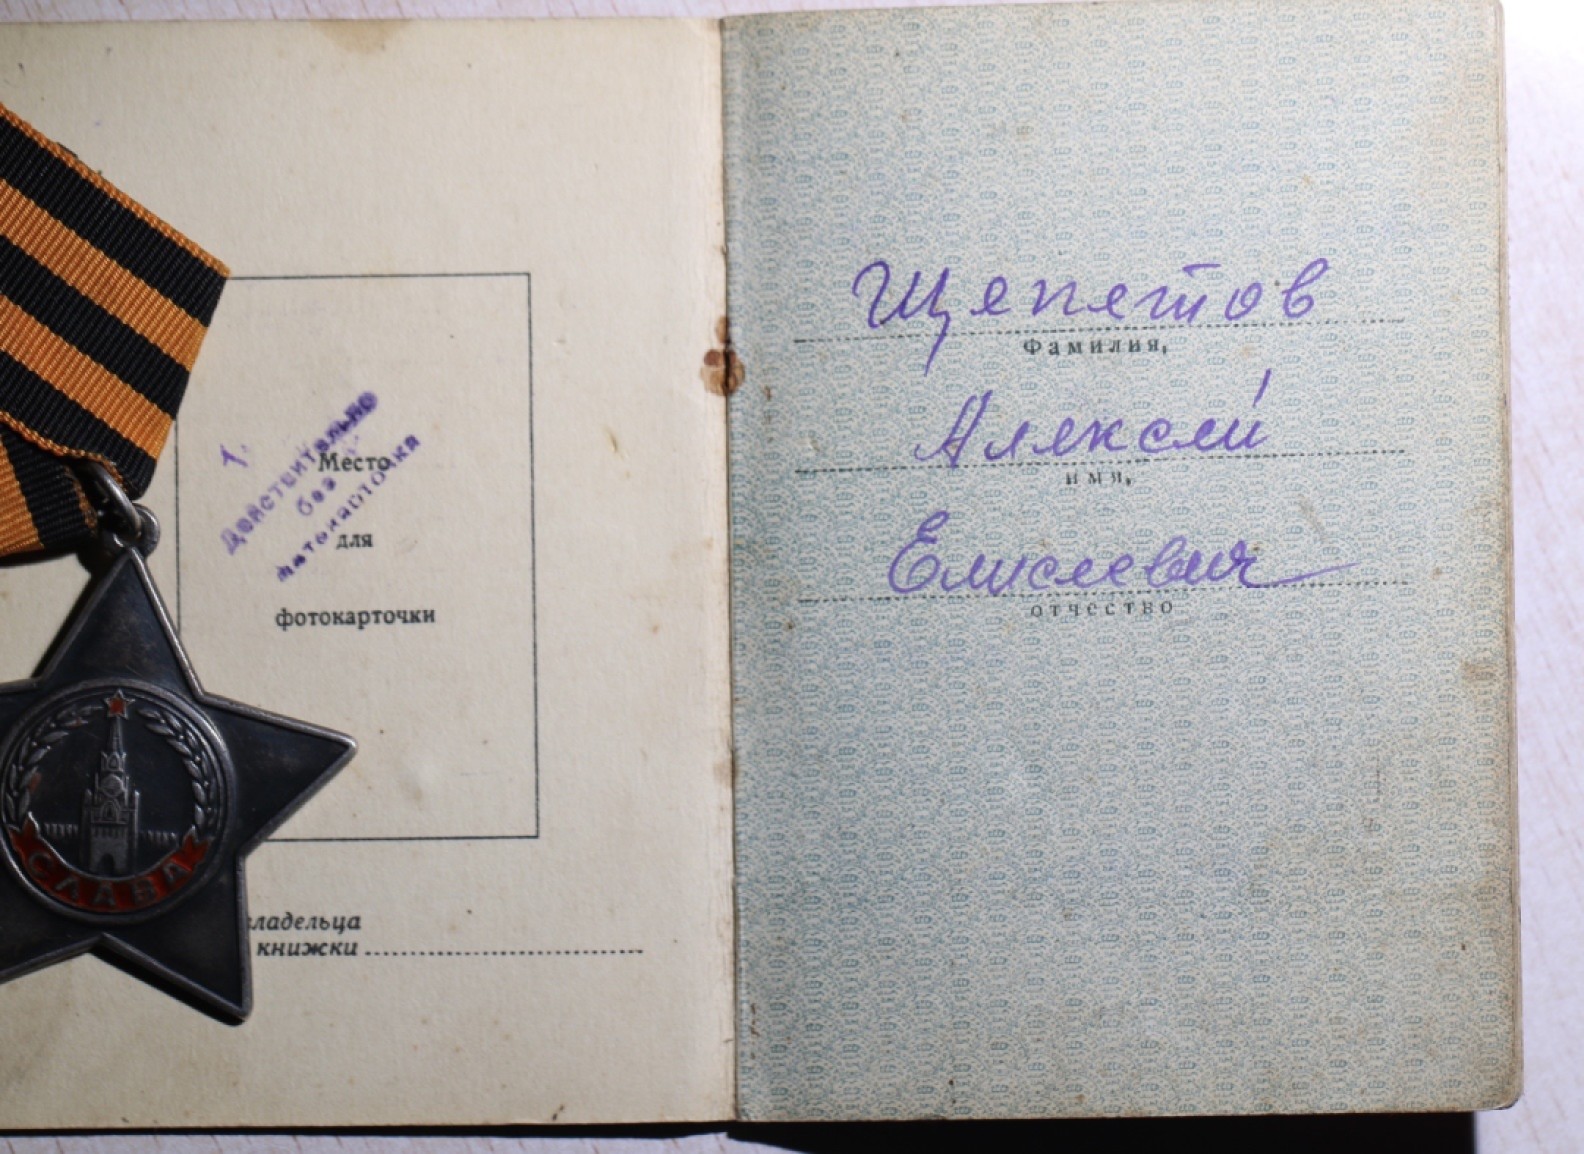 1.
Действительно
без
фотокарточка
Место
для
фотокарточки
владельца
книжки
СЛАВА
Щепетов
Фамилия,
Алексей
имя,
Елисеевич
отчество